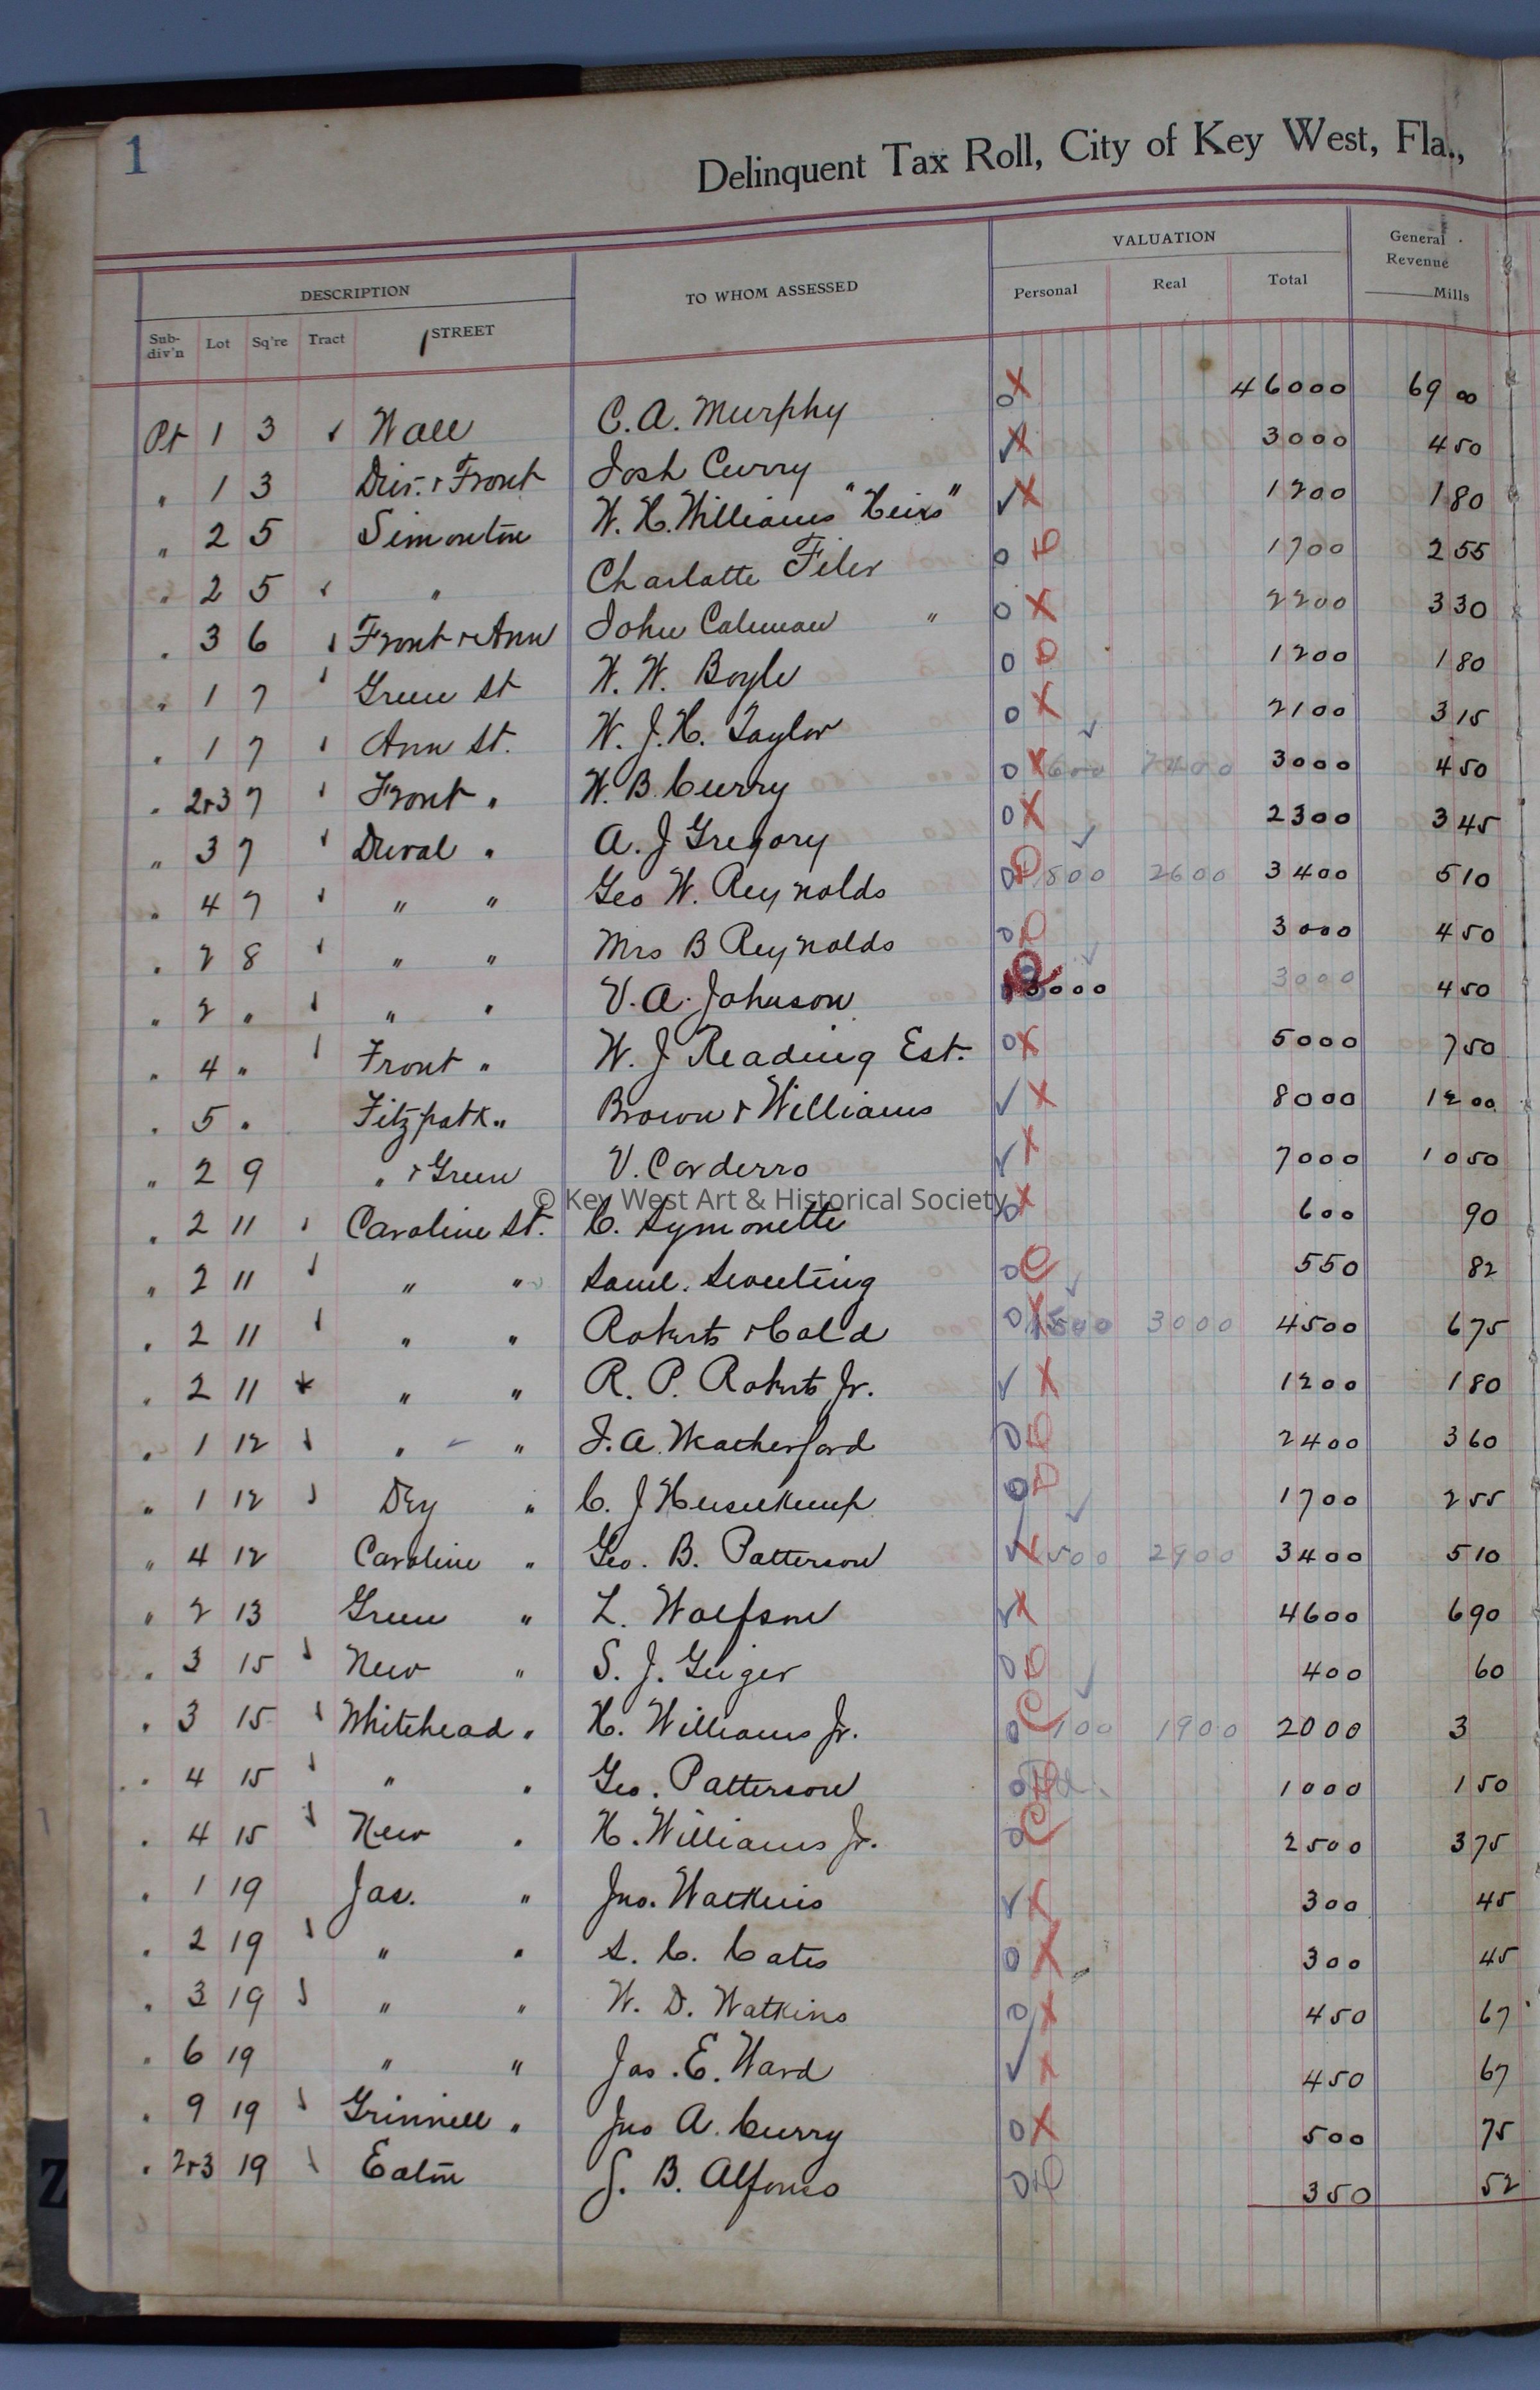 1
Delinquent Tax Roll, City of Key West, Fla.,
DESCRIPTION TO WHOM ASSESSED VALUATION General Revenue Mills
Sub-div'n Lot Sq're Tract STREET Personal Real Total
Pt 1 3 ✓ Wall C. A. Murphy O X 46000 69 00
" 1 3 & Front Josh Curry ✓ X 3000 4 50
" 2 5 Simonton W. H. Williams "Heirs" ✓ X 1200 1 80
" 2 5 ✓ " Charlotte Filer O D 1700 2 55
" 3 6 ✓ Front & Ann John Coleman " O X 2200 3 30
" 1 7 ✓ Green St W. W. Boyle O D 1200 1 80
" 1 7 ✓ Ann St. W. J. H. Taylor O X 2100 3 15
" 2&3 7 ✓ Front " W. B. Curry O X 600 2400 3000 4 50
" 3 7 ✓ Duval " A. J Gregory O X 2300 3 45
" 4 7 ✓ " " Geo W. Reynolds O D 800 2600 3400 5 10
" 2 8 ✓ " " Mrs B Reynolds O D 3000 4 50
" 2 " ✓ " " V. A. Johnson 3000 3000 4 50
" 4 " ✓ Front " W. J Reading Est. O X 5000 7 50
" 5 " Fitzpatk " Brown & Williams ✓ X 8000 12 00
" 2 9 " & Green V. Corderro ✓ X 7000 10 50
© Key West Art & Historical Society
" 2 11 ✓ Caroline St. C. Symonette O X 600 90
" 2 11 ✓ " " Saml. Sweeting O C 550 82
" 2 11 ✓ " " Roberts & Cold O X 1500 3000 4500 6 75
" 2 11 * " " R. P. Roberts Jr. ✓ X 1200 1 80
" 1 12 ✓ " " J. A. Weatherford O D 2400 3 60
" 1 12 ✓ Dey " C. J Huseekamp O D 1700 2 55
" 4 12 Caroline " Geo. B. Patterson ✓ X 500 2900 3400 5 10
" 2 13 Green " L. Wolfson ✓ X 4600 6 90
" 3 15 ✓ New " S. J. Geiger O D 400 60
" 3 15 ✓ Whitehead " H. Williams Jr. O C 100 1900 2000 3
" 4 15 ✓ " " Geo. Patterson O 1000 1 50
" 4 15 ✓ New " H. Williams Jr. O C 2500 3 75
" 1 19 Jas. " Jno. Watkins ✓ X 300 45
" 2 19 ✓ " " S. C. Cates O X 300 45
" 3 19 ✓ " " W. D. Watkins O X 450 67
" 6 19 " " Jas. E. Ward ✓ X 450 67
" 9 19 ✓ Grinnell " Jno A. Curry O X 500 75
" 2&3 19 ✓ Eaton J. B. Alfonso O D 350 52